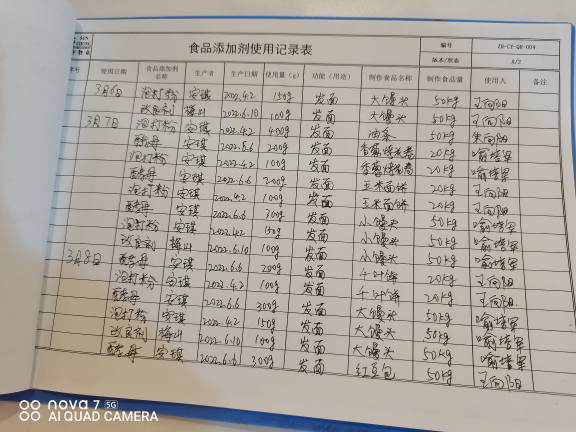 食品添加剂使用记录表
编号 ZH-CP-QR-004
版本/状态 A/2
序号 使用日期 食品添加剂名称 生产者 生产日期 使用量（g） 功能（用途） 制作食品名称 制作食品量 使用人 备注
3月6日 泡打粉 安琪 2022.4.2 150g 发面 大馒头 50kg 王向阳
改良剂 梅山 2022.6.10 100g 发面 大馒头 50kg 王向阳
3月7日 泡打粉 安琪 2022.4.2 400g 发面 油条 50kg 向阳
酵母 安琪 2022.6.6 200g 发面 香葱烧花卷 20kg 喻培军
泡打粉 安琪 2022.4.2 100g 发面 香葱烧花卷 20kg 喻培军
酵母 安琪 2022.6.6 200g 发面 玉米面饼 20kg 王向阳
泡打粉 安琪 2022.4.2 100g 发面 玉米面饼 20kg 王向阳
酵母 安琪 2022.6.6 300g 发面 小馒头 50kg 喻培军
泡打粉 安琪 2022.4.2 150g 发面 小馒头 50kg 喻培军
改良剂 梅山 2022.6.10 100g 发面 小馒头 50kg 喻培军
3月8日 酵母 安琪 2022.6.6 200g 发面 千层饼 20kg 王向阳
泡打粉 安琪 2022.4.2 100g 发面 千层饼 20kg 王向阳
酵母 安琪 2022.6.6 300g 发面 大馒头 50kg 喻培军
泡打粉 安琪 2022.4.2 150g 发面 大馒头 50kg 喻培军
改良剂 梅山 2022.6.10 100g 发面 大馒头 50kg 喻培军
酵母 安琪 2022.6.6 300g 发面 红豆包 50kg 王向阳
nova 7 5G
AI QUAD CAMERA